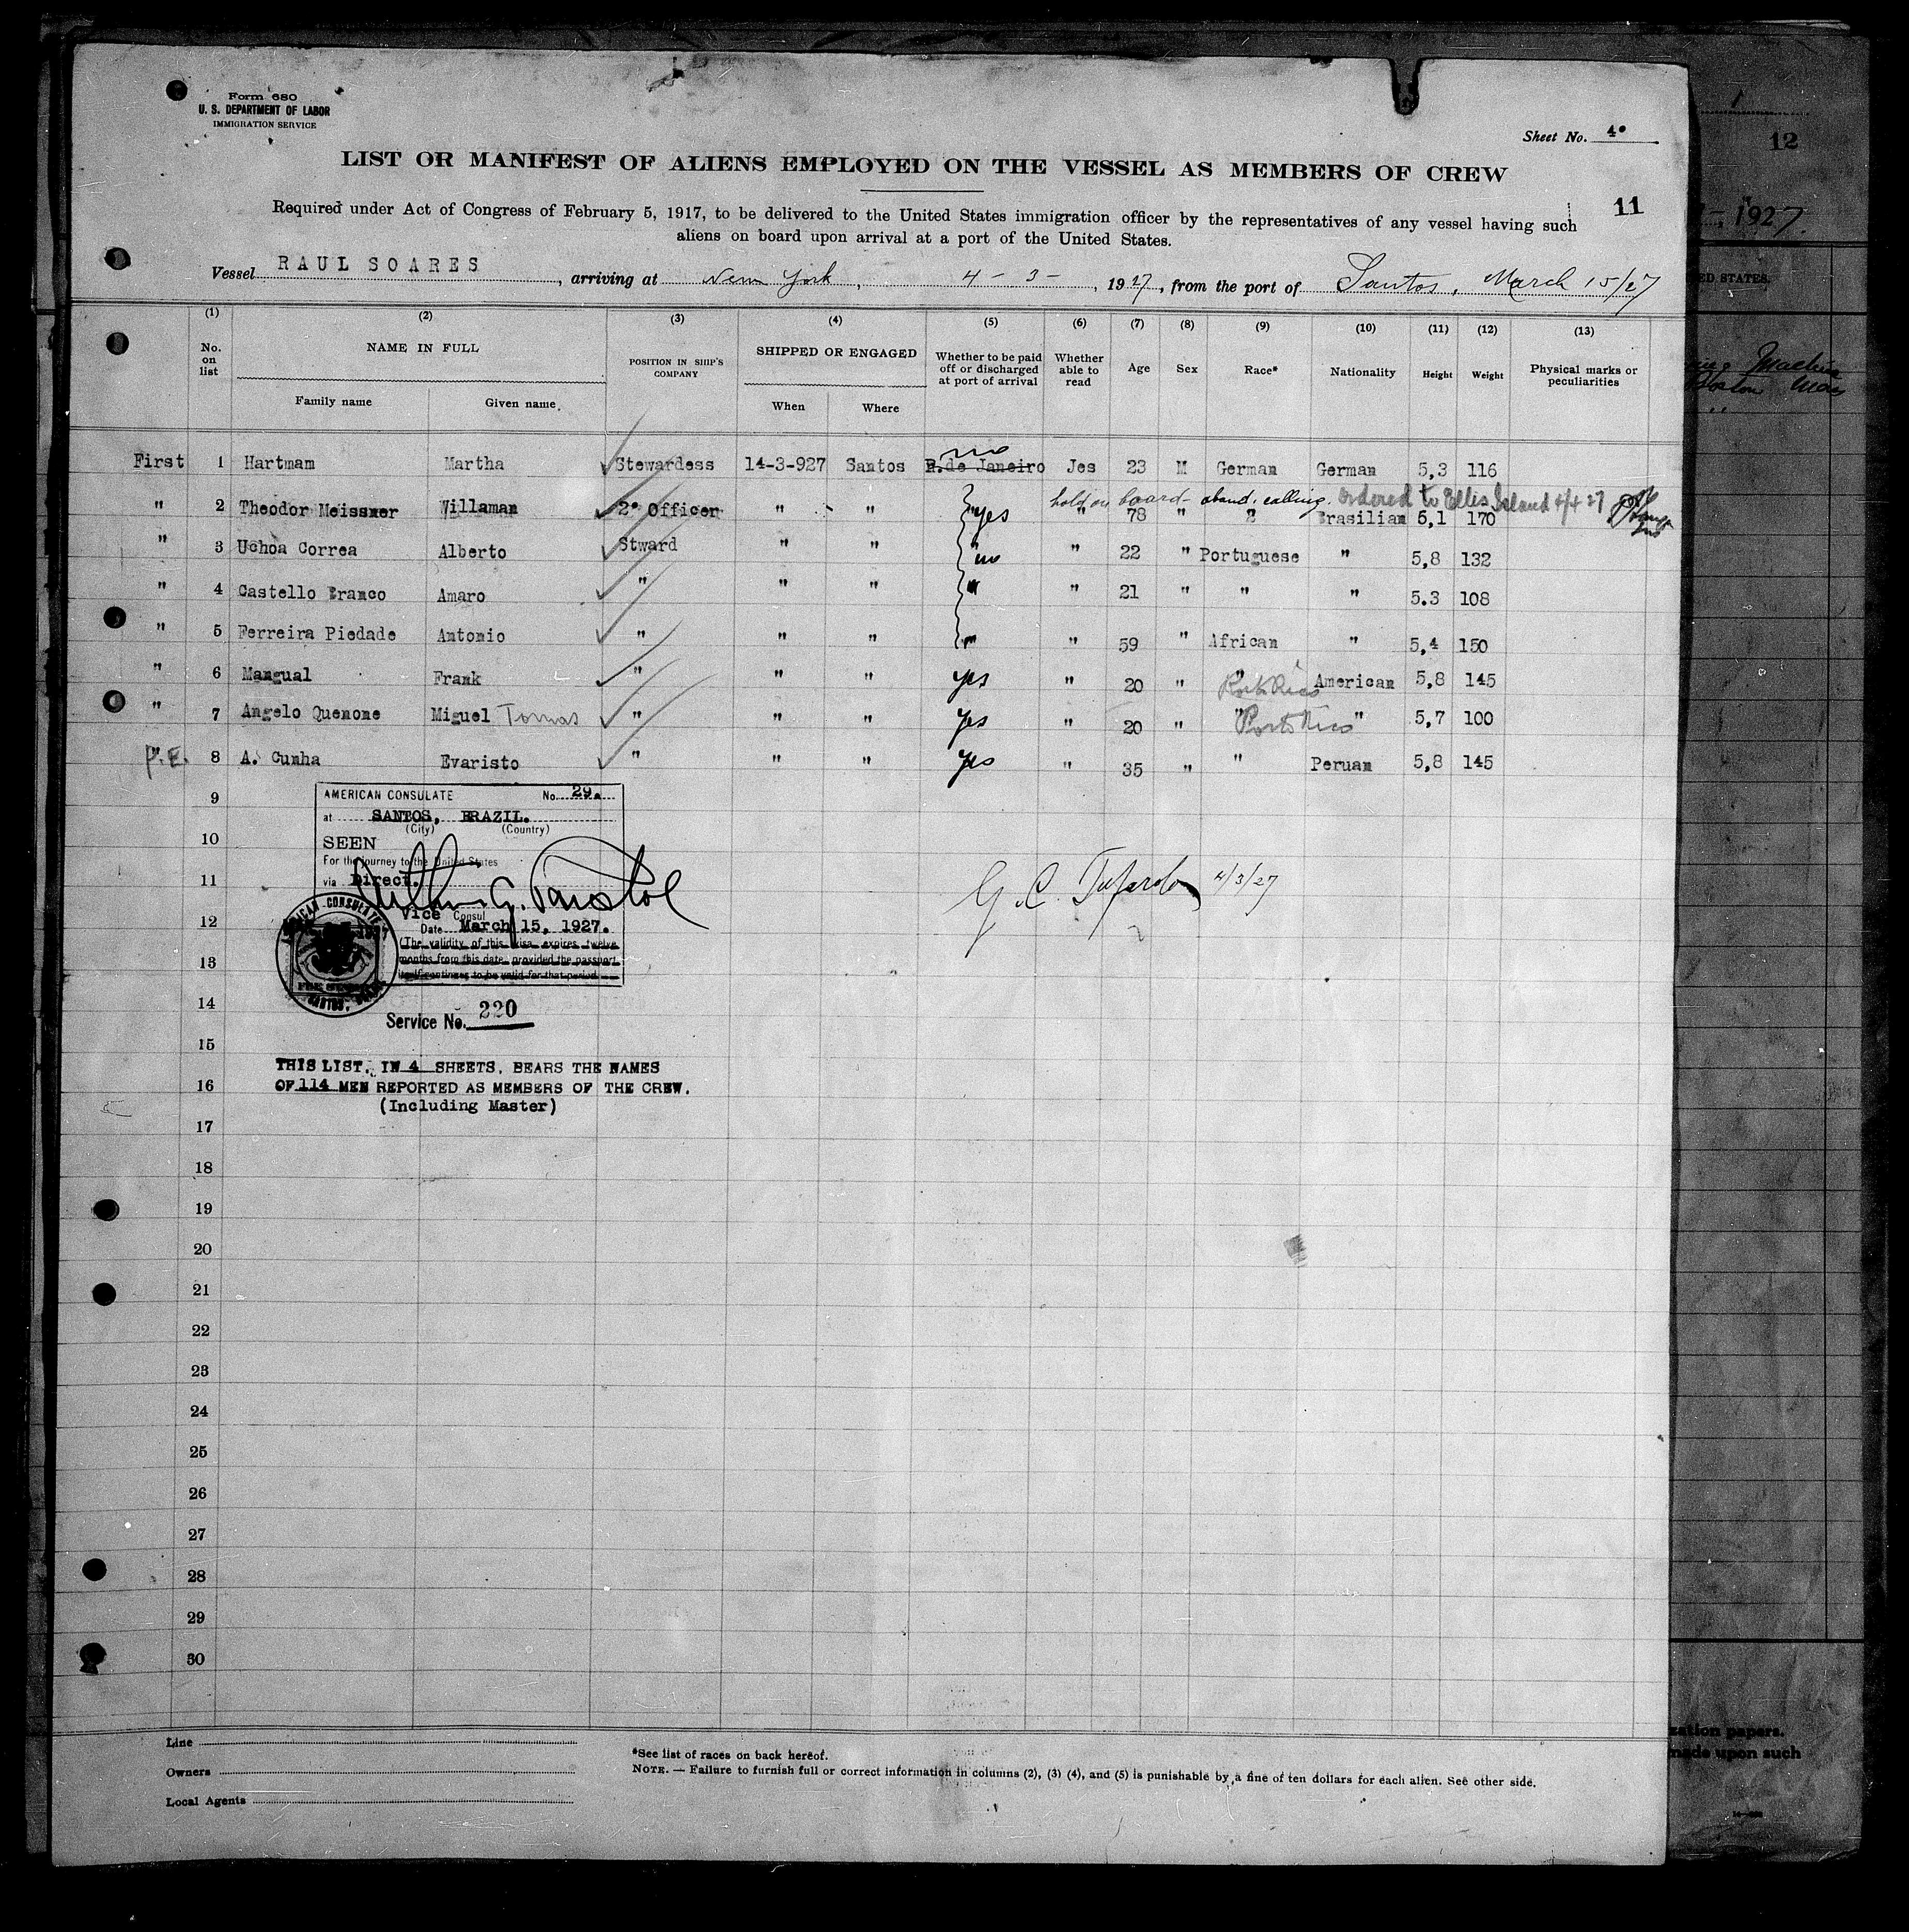 Form 680
U. S. DEPARTMENT OF LABOR
IMMIGRATION SERVICE
Sheet No. 4º
LIST OR MANIFEST OF ALIENS EMPLOYED ON THE VESSEL AS MEMBERS OF CREW
Required under Act of Congress of February 5, 1917, to be delivered to the United States immigration officer by the representatives of any vessel having such
aliens on board upon arrival at a port of the United States.
11
Vessel RAUL SOARES, arriving at New York, 4 - 3 -, 1927, from the port of Santos, March 15/27
(1) (2) (3) (4) (5) (6) (7) (8) (9) (10) (11) (12) (13)
No. on list NAME IN FULL POSITION IN SHIP'S COMPANY SHIPPED OR ENGAGED Whether to be paid off or discharged at port of arrival Whether able to read Age Sex Race* Nationality Height Weight Physical marks or peculiarities
Family name Given name When Where
no
First 1 Hartmam Martha Stewardess 14-3-927 Santos R.de Janeiro Jes 23 M German German 5,3 116
hold on board - aband. calling. ordered to Ellis Island 4/4 27
" 2 Theodor Meissner Willaman 2º Officer " " yes " 78 " " Brasilian 5,1 170
" 3 Uchoa Correa Alberto Stward " " no " 22 " Portuguese " 5,8 132
" 4 Castello Branco Amaro " " " " " 21 " " " 5.3 108
" 5 Ferreira Piedade Antonio " " " " " 59 " African " 5,4 150
" 6 Mangual Frank " " " yes " 20 " " Porto Rico American 5,8 145
" 7 Angelo Quenone Miguel Tomas " " " yes " 20 " " Porto Rico " 5,7 100
P.E. 8 A. Cunha Evaristo " " " yes " 35 " " Peruan 5,8 145
9
AMERICAN CONSULATE No. 29.
at SANTOS, BRAZIL.
(City) (Country)
10
SEEN
For the journey to the United States
11
via Direct.
G. C. 4/3/27
Vice Consul
12
Date March 15, 1927.
(The validity of this visa expires twelve
months from this date, provided the passport
itself continues to be valid for that period.
AMERICAN CONSULATE
13
14
Service No. 220
15
THIS LIST, IN 4 SHEETS, BEARS THE NAMES
16
OF 114 MEN REPORTED AS MEMBERS OF THE CREW.
(Including Master)
17
18
19
20
21
22
23
24
25
26
27
28
29
30
Line
Owners
Local Agents
*See list of races on back hereof.
NOTE. — Failure to furnish full or correct information in columns (2), (3) (4), and (5) is punishable by a fine of ten dollars for each alien. See other side.
1
12
1927.
ED STATES.
Machine
Boston Mass
"
zation papers.
made upon such